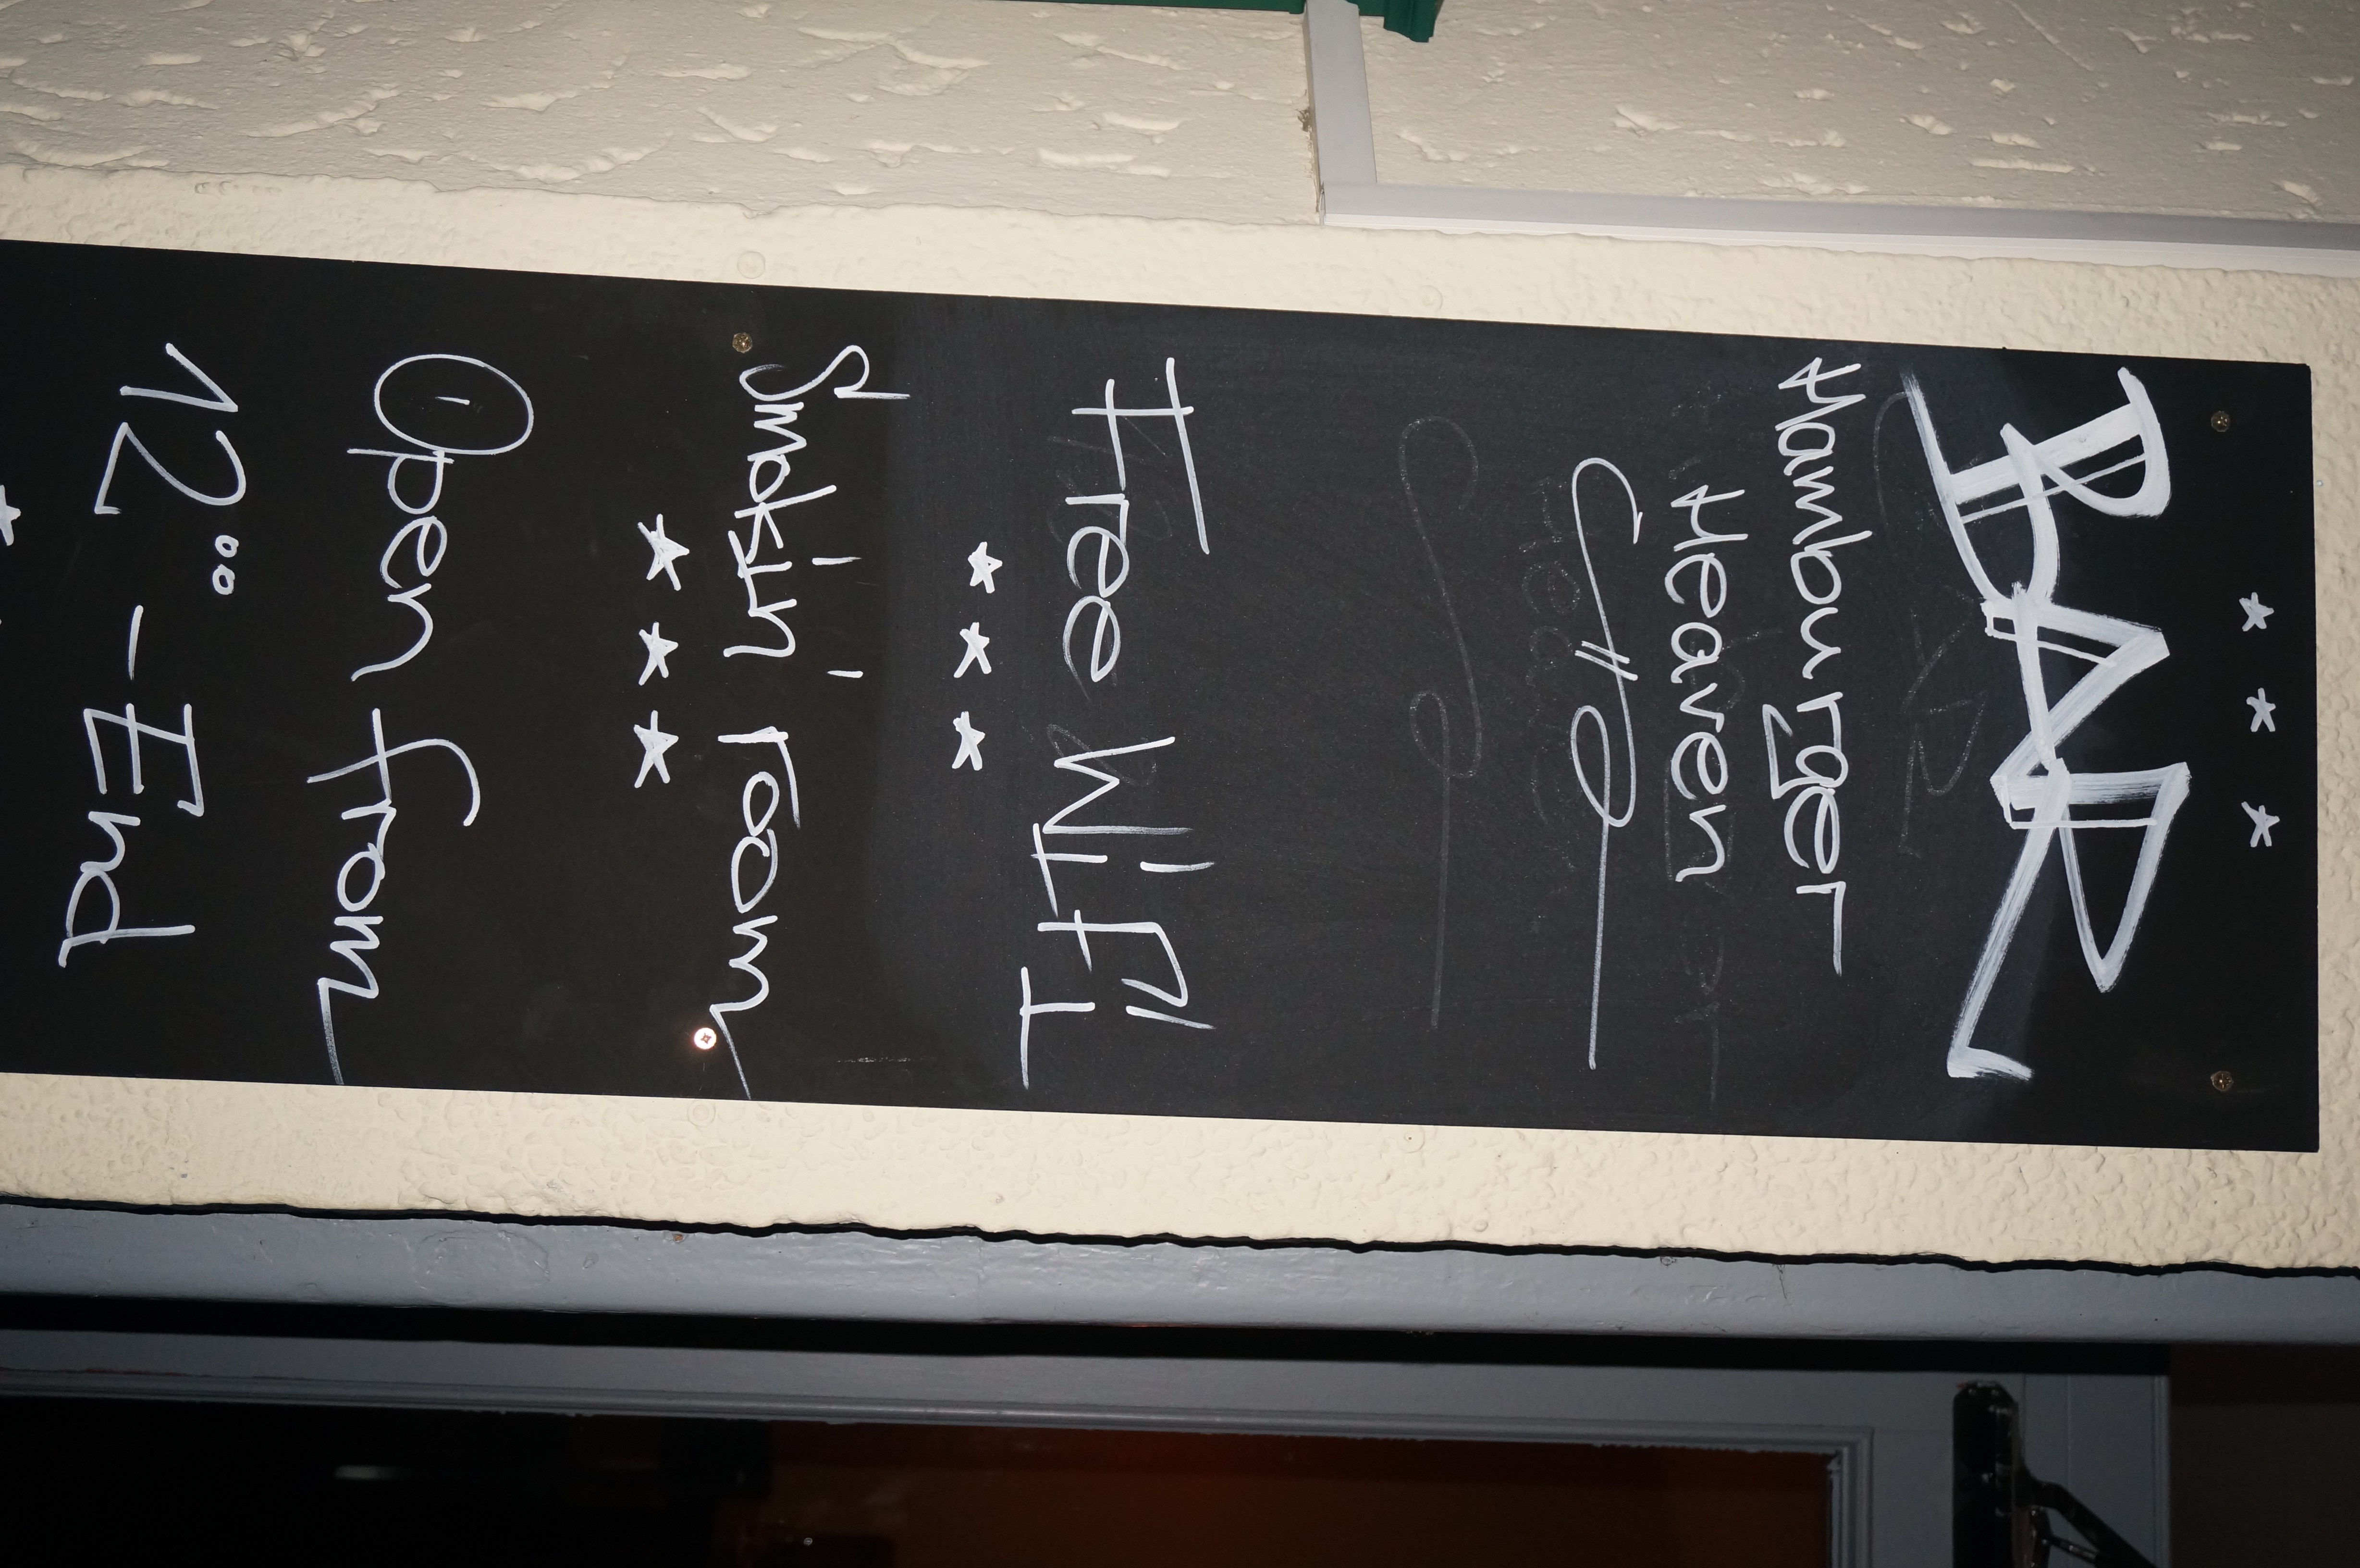 BAR
Hamburger
Heaven
Free WiFi
Smokin' room
Open from
12⁰⁰ - End